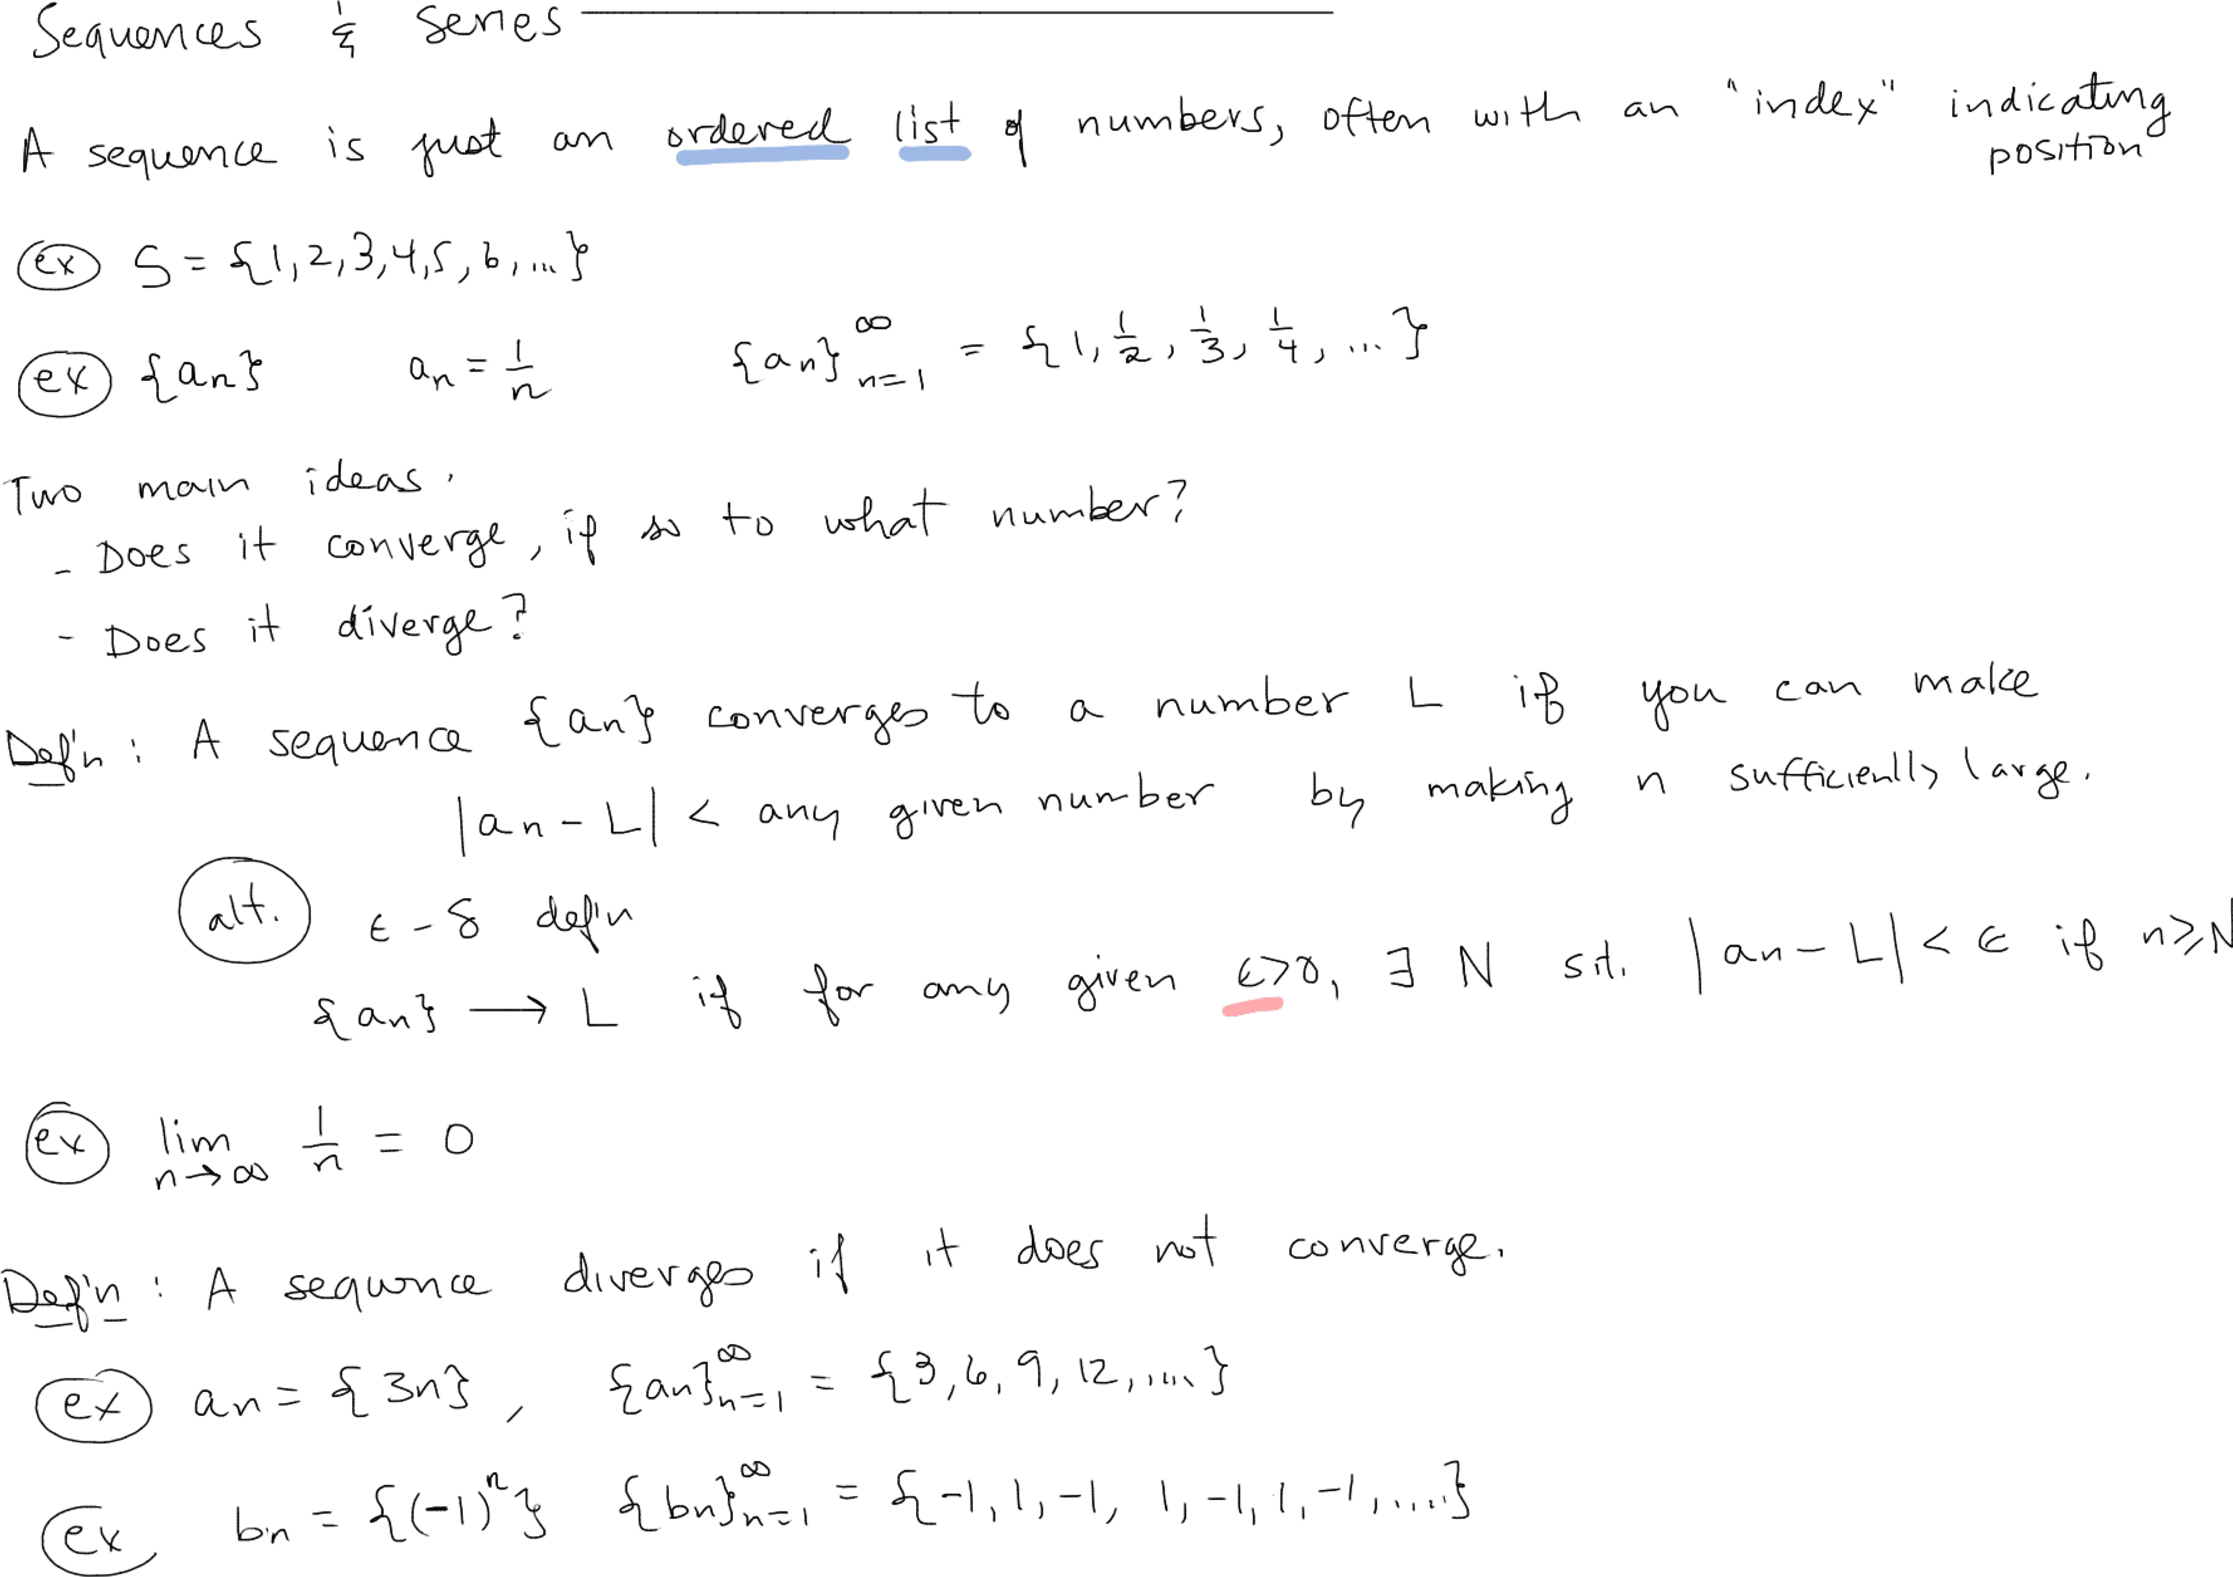 Sequences & Series
A sequence is just an ordered list of numbers, often with an "index" indicating position
ex S = {1,2,3,4,5,6,...}
ex {an} an = 1/n {an}_{n=1}^∞ = {1, 1/2, 1/3, 1/4, ...}
Two main ideas.
- Does it converge, if so to what number?
- Does it diverge?
Def'n: A sequence {an} converges to a number L if you can make
|an - L| < any given number by making n sufficiently large.
alt. ε - δ def'n
{an} → L if for any given ε>0, ∃ N s.t. |an - L| < ε if n ≥ N
ex lim_{n→∞} 1/n = 0
Def'n: A sequence diverges if it does not converge.
ex an = {3n}, {an}_{n=1}^∞ = {3, 6, 9, 12, ....}
ex bn = {(-1)^n} {bn}_{n=1}^∞ = {-1, 1, -1, 1, -1, 1, -1, .....}